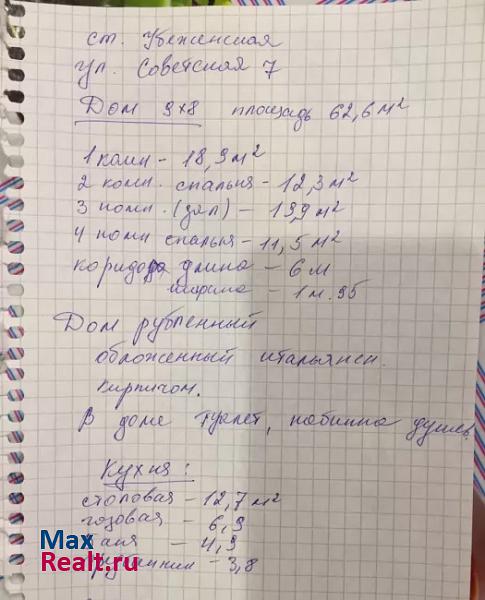 ст. Убеженская
ул. Советская 7
Дом 9×8 площадь 62,6 м²
1 комн - 18,9 м²
2 комн. спальня - 12,3 м²
3 комн. (зал) - 19,9 м²
4 комн спальня - 11,5 м²
коридор длина - 6 м
ширина - 1 м. 95
Дом рубленный
обложенный итальянск.
кирпичом.
В доме туалет, кабинка душев.
Кухня:
столовая - 12,7 м²
газовая - 6,9
баня - 4,9
- 3,8
Max
Realt.ru